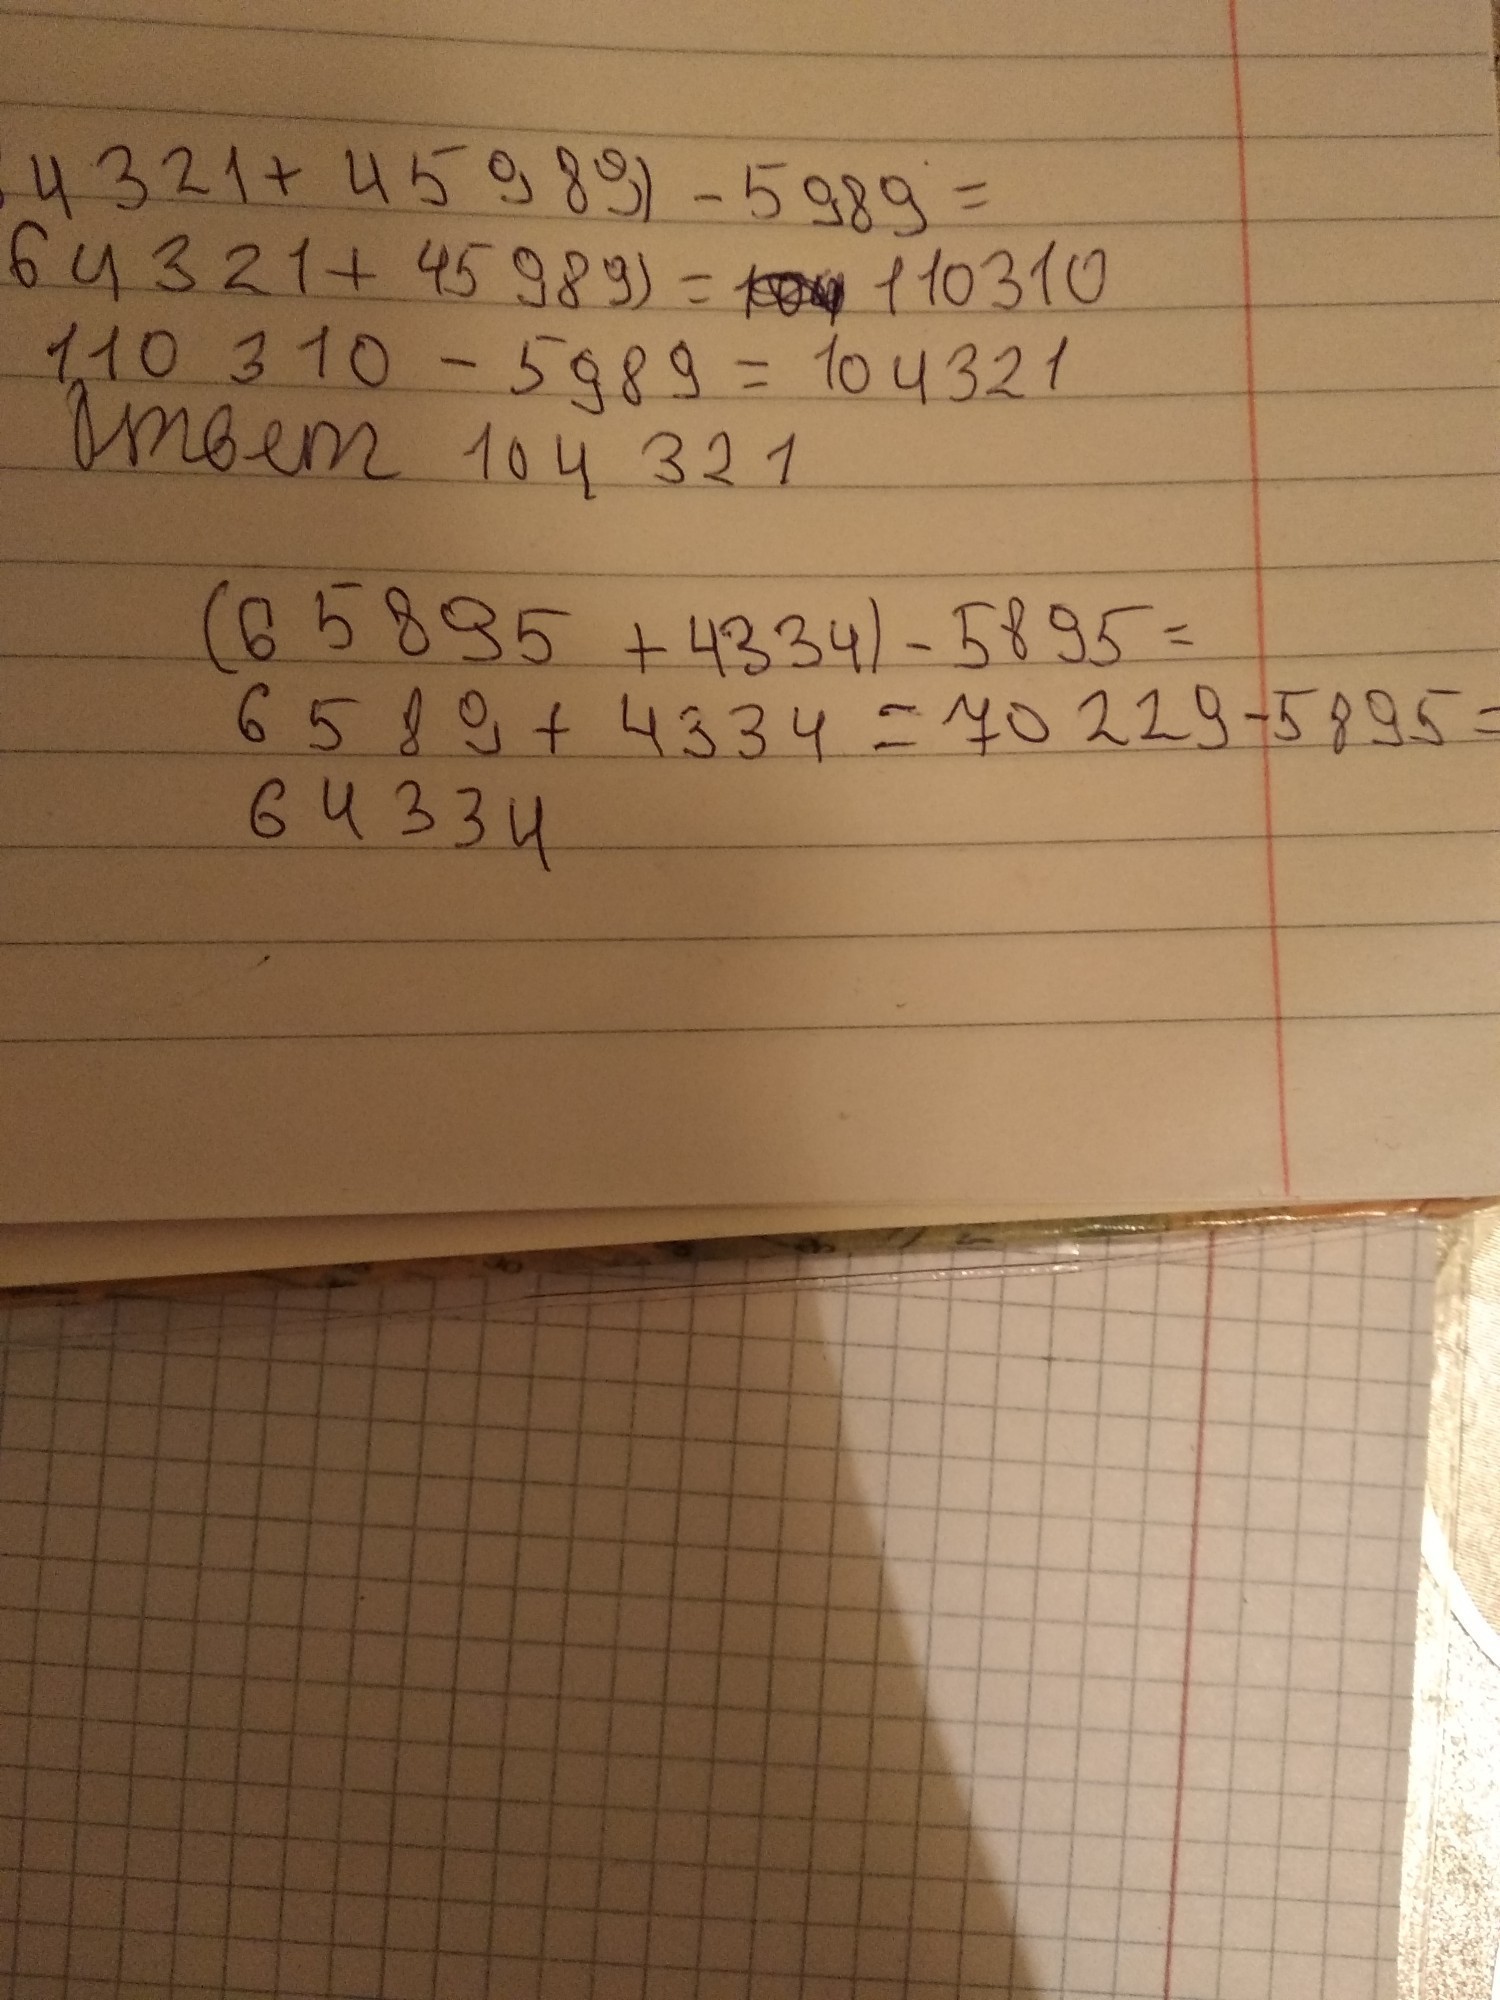 4321+ 45989) - 5989 =
64321+ 45989) = 110310
110 310 - 5989 = 104321
Ответ 104 321
(65895 +4334) - 5895 =
6589 + 4334 = 70229-5895 =
64334